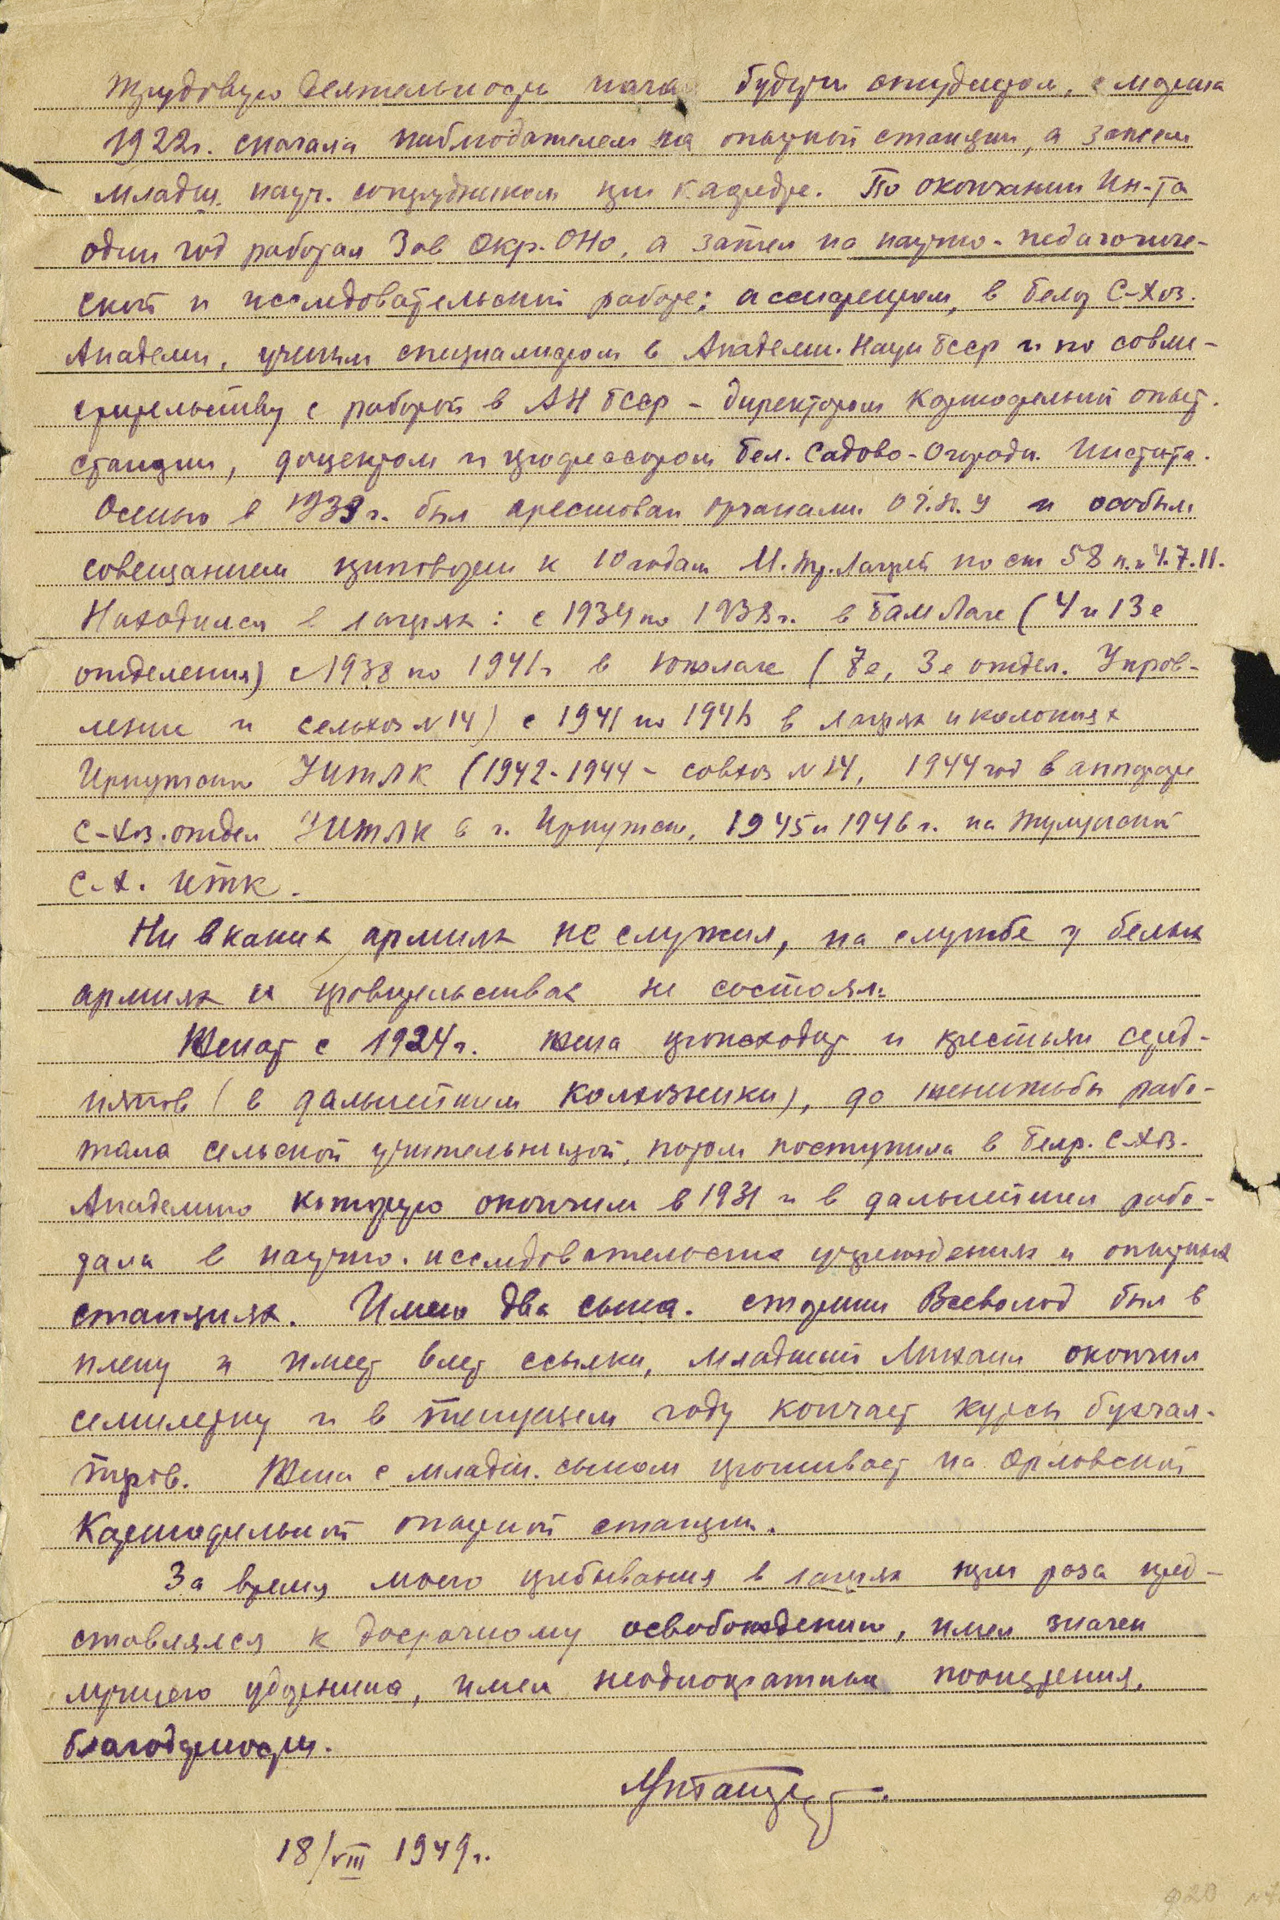 Трудовую деятельность начал будучи студентом, с марта
1922 г. сначала наблюдателем на опытной станции, а затем
младш. науч. сотрудником при кафедре. По окончании Ин-та
один год работал Зав Окр. ОНО, а затем на научно-педагогиче-
ской и исследовательской работе; ассистентом, в Белор С-Хоз.
Академии, ученым специалистом в Академии Наук БССР и по совме-
стительству с работой в АН БССР – директором Картофельной опыт.
станции, доцентом и профессором Бел. Садово-Огородн. Инстита.
Осенью в 1933 г. был арестован органами О.Г.П.У и особым
совещанием приговорен к 10 годам И.Тр.Лагерей по ст 58 п.п 4.7.11.
Находился в лагерях: с 1934 по 1938 г. в БАМЛаге (4 и 13е
отделения) с 1938 по 1941 г в Южлаге (7е, 3е отдел. Управ-
ление и сельхоз № 14) с 1941 по 1946 в лагерях и колониях
Иркутского УИТЛК (1942-1944 – совхоз № 14, 1944 год в аппарате
С-Хоз. отдел УИТЛК в г. Иркутске, 1945 и 1946 г. на Тулунской
С.-Х. ИТК.
Ни в каких армиях не служил, на службе у белых
армиях и правительствах не состоял.
Женат с 1924 г. Жена происходит и крестьян серед-
няков (в дальнейшем колхозники), до женитьбы рабо-
тала сельской учительницей, потом поступила в Белор. С-Хоз.
Академию которую окончила в 1931 и в дальнейшем рабо-
тала в научно-исследовательских учреждениях и опытных
станциях. Имею два сына. Старший Всеволод был в
плену и имеет 6 лет ссылки, младший Михаил окончил
семилетку и в текущем году кончает курсы бухгал-
теров. Жена с младш. сыном проживает на Орловской
Картофельной опытной станции.
За время моего пребывания в лагерях три раза пред-
ставлялся к досрочному освобождению, имел значек
лучшего ударника, имел неоднократные поощрения,
благодарности.
18/VIII 1949 г.